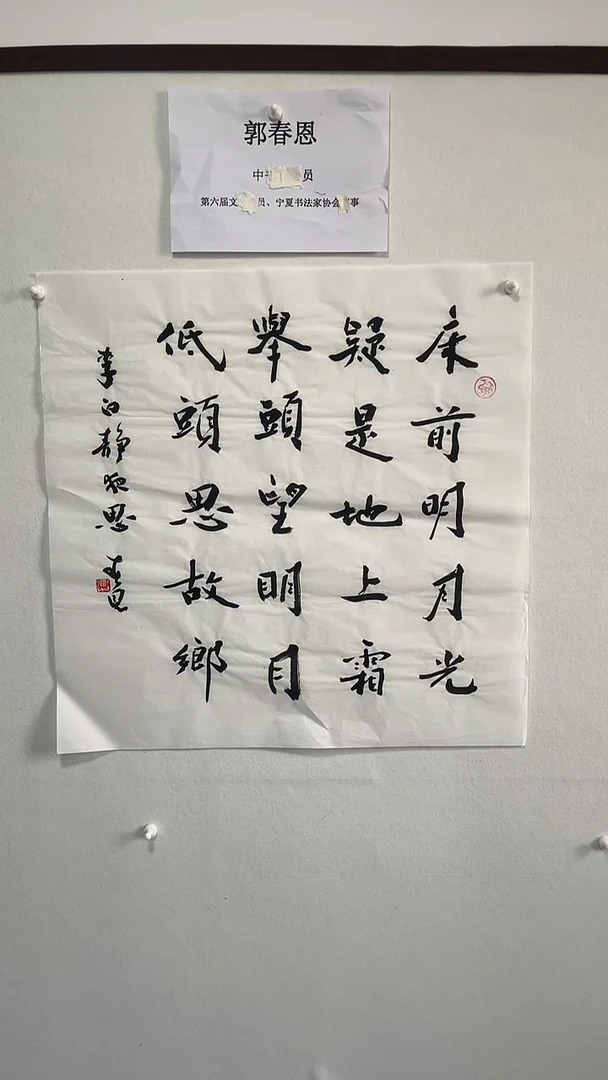 郭春恩
中 员
第六届文 员、宁夏书法家协会 事
床前明月光
疑是地上霜
舉頭望明月
低頭思故鄉
李白靜夜思 春恩